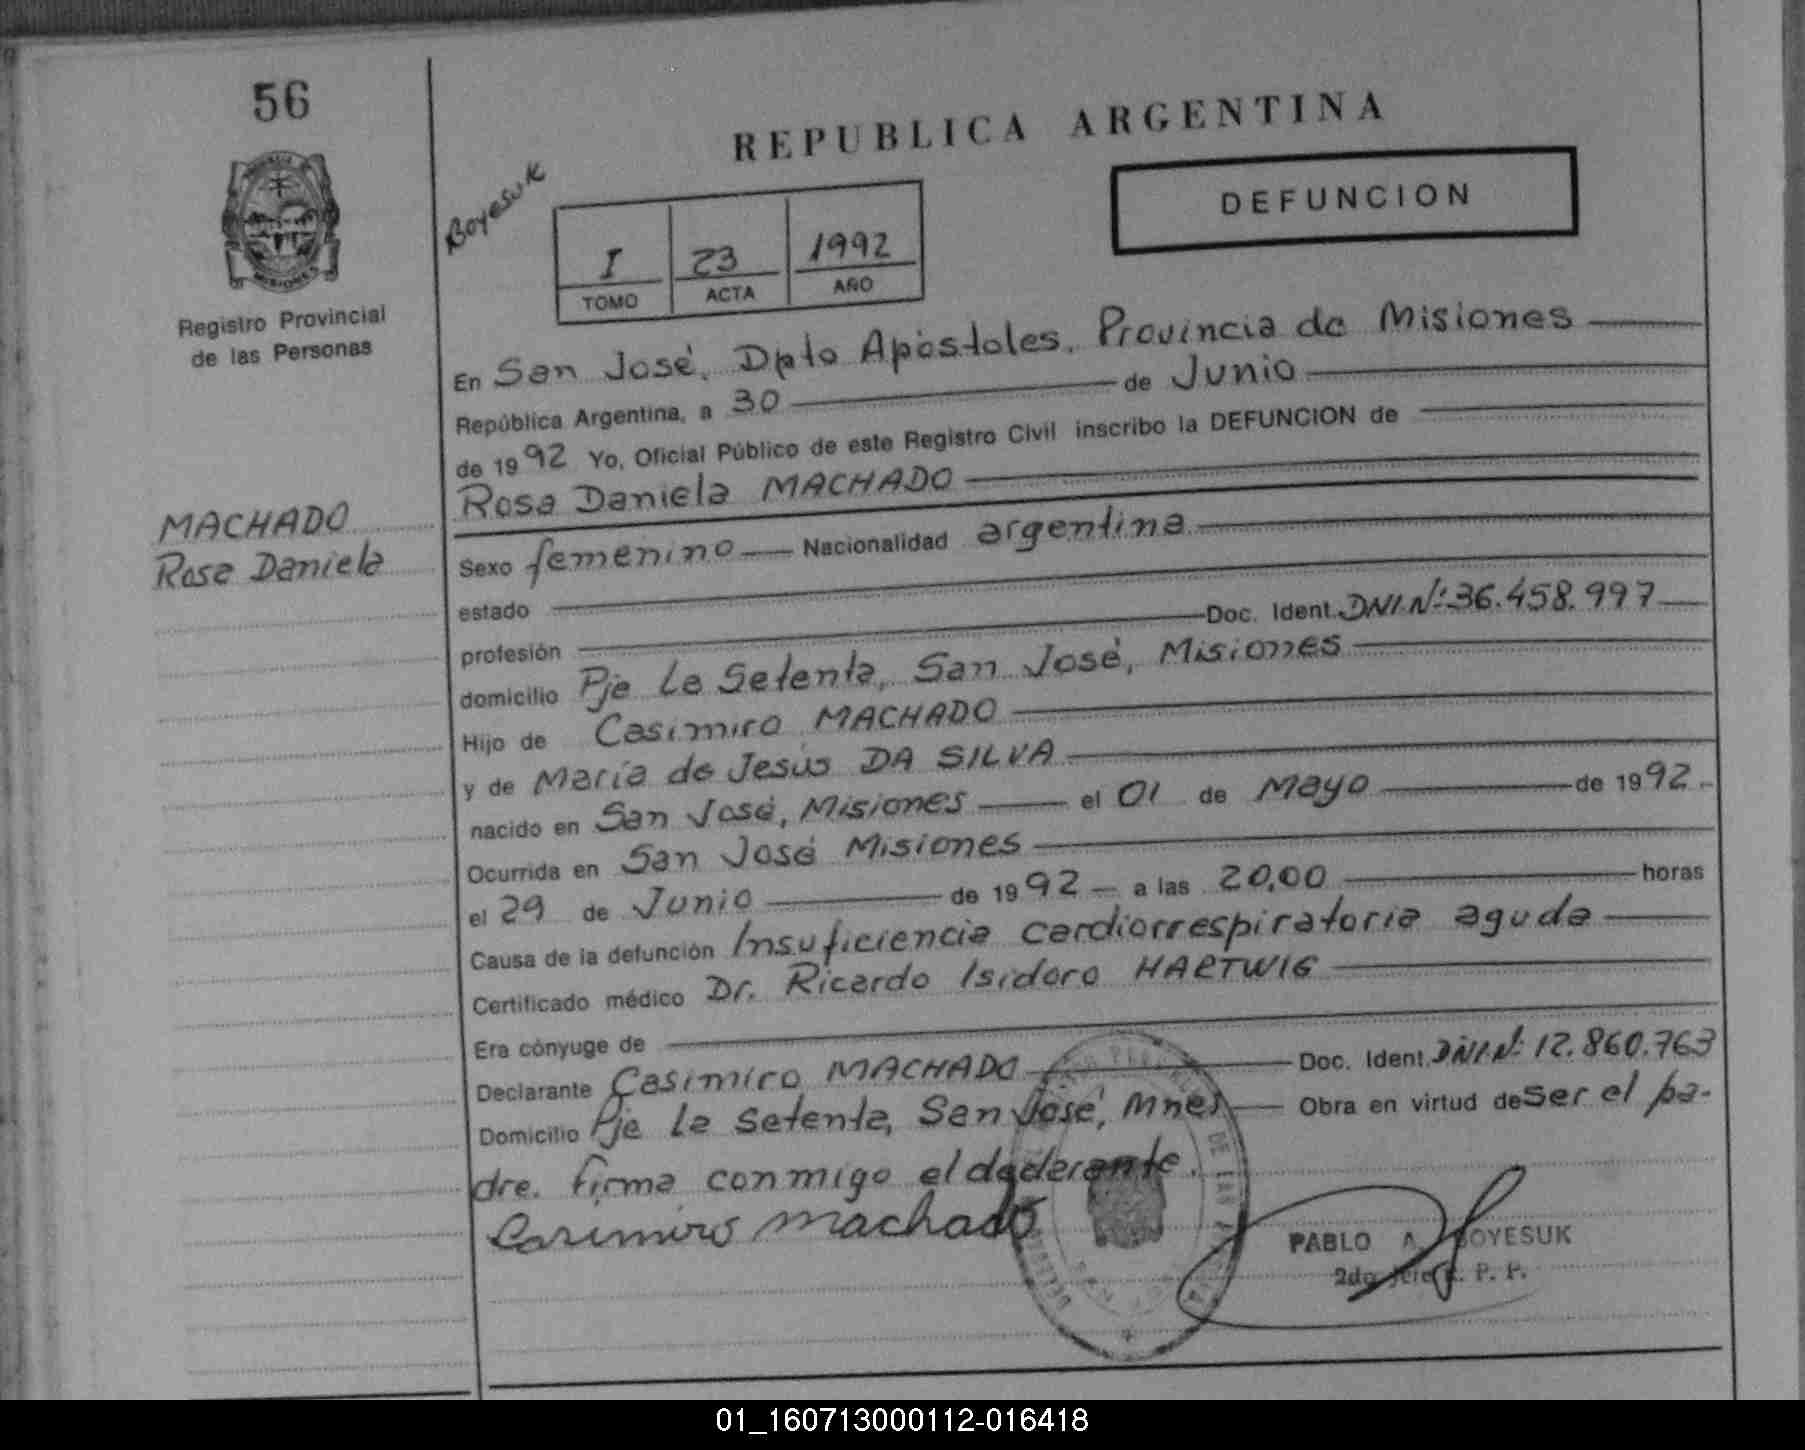 56
REPUBLICA ARGENTINA
Boyesuk
DEFUNCION
I 23 1992
TOMO ACTA AÑO
MISIONES
Registro Provincial
de las Personas
En San José, Dpto Apóstoles, Provincia de Misiones
República Argentina, a 30 de Junio
de 1992 Yo, Oficial Público de este Registro Civil inscribo la DEFUNCION de
Rosa Daniela MACHADO
MACHADO
Rosa Daniela
Sexo femenino Nacionalidad argentina
estado
profesión Doc. Ident. DNI.Nº: 36.458.997
domicilio Pje La Setenta, San José, Misiones
Hijo de Casimiro MACHADO
y de María de Jesús DA SILVA
nacido en San José, Misiones el 01 de Mayo de 1992.-
Ocurrida en San José Misiones
el 29 de Junio de 1992 a las 20,00 horas
Causa de la defunción Insuficiencia cardiorrespiratoria aguda
Certificado médico Dr. Ricardo Isidoro HARTWIG
Era cónyuge de
Declarante Casimiro MACHADO Doc. Ident. DNI.Nº: 12.860.763
Domicilio Pje la Setenta, San José, Mnes Obra en virtud de ser el pa-
dre. Firma conmigo el declarante.
Casimiro Machado
PABLO A. BOYESUK
2do Jefe R. P. P.
DE LAS
01_160713000112-016418